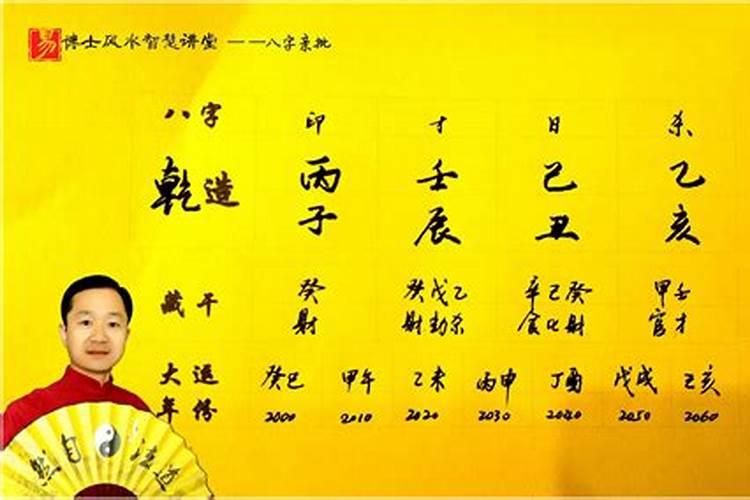 易 博士风水智慧讲堂 ——八字亲批
八字 印 才 日 杀
乾造 丙 壬 己 乙
子 辰 丑 亥
藏干 癸 癸戊乙 辛己癸 甲壬
財 財劫杀 食比財 官才
大运 癸巳 甲午 乙未 丙申 丁酉 戊戌 亥
年份 2000 2010 2020 2030 2040 2050 2060
道法自然